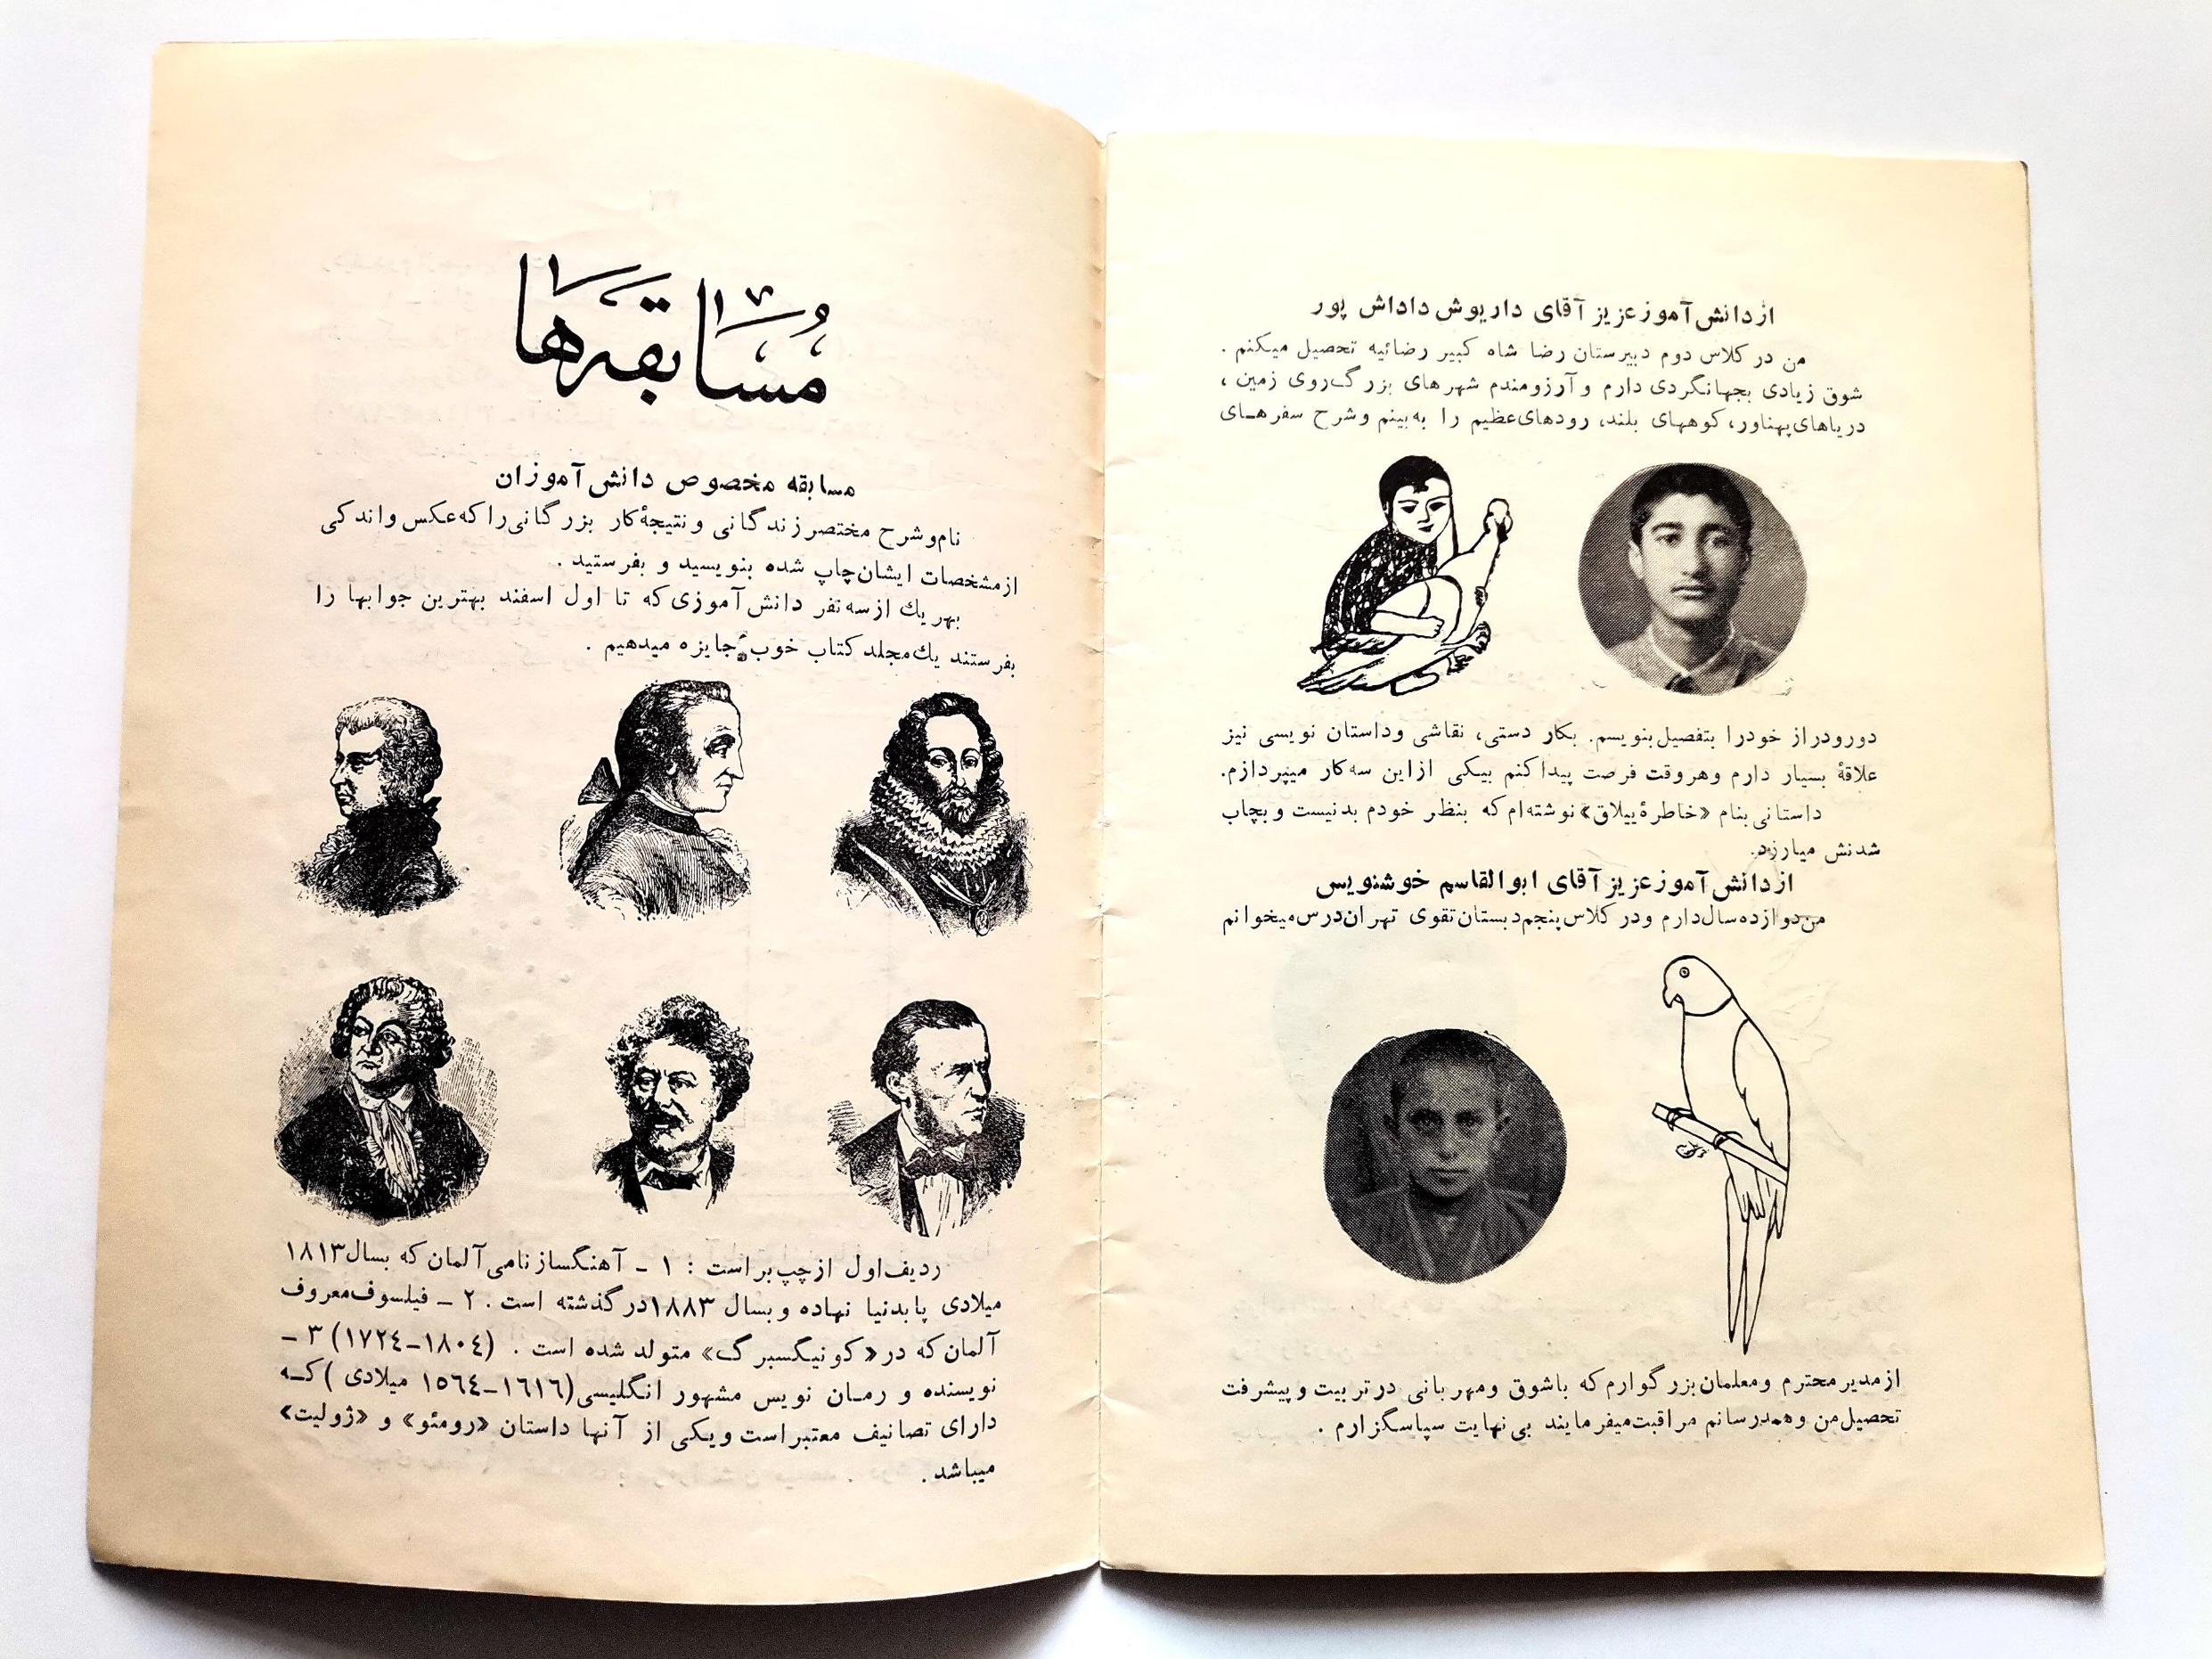 از دانش آموز عزیز آقای داریوش داداش پور
من در کلاس دوم دبیرستان رضا شاه کبیر رضائیه تحصیل میکنم .
شوق زیادی بجهانگردی دارم و آرزومندم شهرهای بزرگ روی زمین ،
دریاهای پهناور، کوههای بلند، رودهای عظیم را به بینم و شرح سفرهای
دور و دراز خود را بتفصیل بنویسم. بکار دستی، نقاشی و داستان نویسی نیز
علاقهٔ بسیار دارم و هر وقت فرصت پیدا کنم بیکی از این سه کار میپردازم.
داستانی بنام «خاطرهٔ ییلاق» نوشته‌ام که بنظر خودم بد نیست و بچاب
شدنش میارزد.
از دانش آموز عزیز آقای ابوالقاسم خوشنویس
من دوازده سال دارم و در کلاس پنجم دبستان تقوی تهران درس میخوانم
از مدیر محترم و معلمان بزرگوارم که با شوق و مهربانی در تربیت و پیشرفت
تحصیل من و همدرسانم مراقبت میفرمایند بی نهایت سپاسگزارم .
مُسابقه‌ها
مسابقه مخصوص دانش آموزان
نام و شرح مختصر زندگانی و نتیجهٔ کار بزرگانی را که عکس و اندکی
از مشخصات ایشان چاپ شده بنویسید و بفرستید .
بهر یك از سه نفر دانش آموزی که تا اول اسفند بهترین جوابها را
بفرستند یك مجلد کتاب خوب جایزه میدهیم .
ردیف اول از چپ براست : ۱ - آهنگساز نامی آلمان که بسال ۱۸۱۳
میلادی پا بدنیا نهاده و بسال ۱۸۸۳ در گذشته است . ۲ - فیلسوف معروف
آلمان که در «کونیگسبرگ» متولد شده است . (۱۸۰٤-۱۷۲٤) ۳ -
نویسنده و رمان نویس مشهور انگلیسی (۱٦۱٦-۱٥٦٤ میلادی ) که
دارای تصانیف معتبر است و یکی از آنها داستان «رومئو» و «ژولیت»
میباشد .